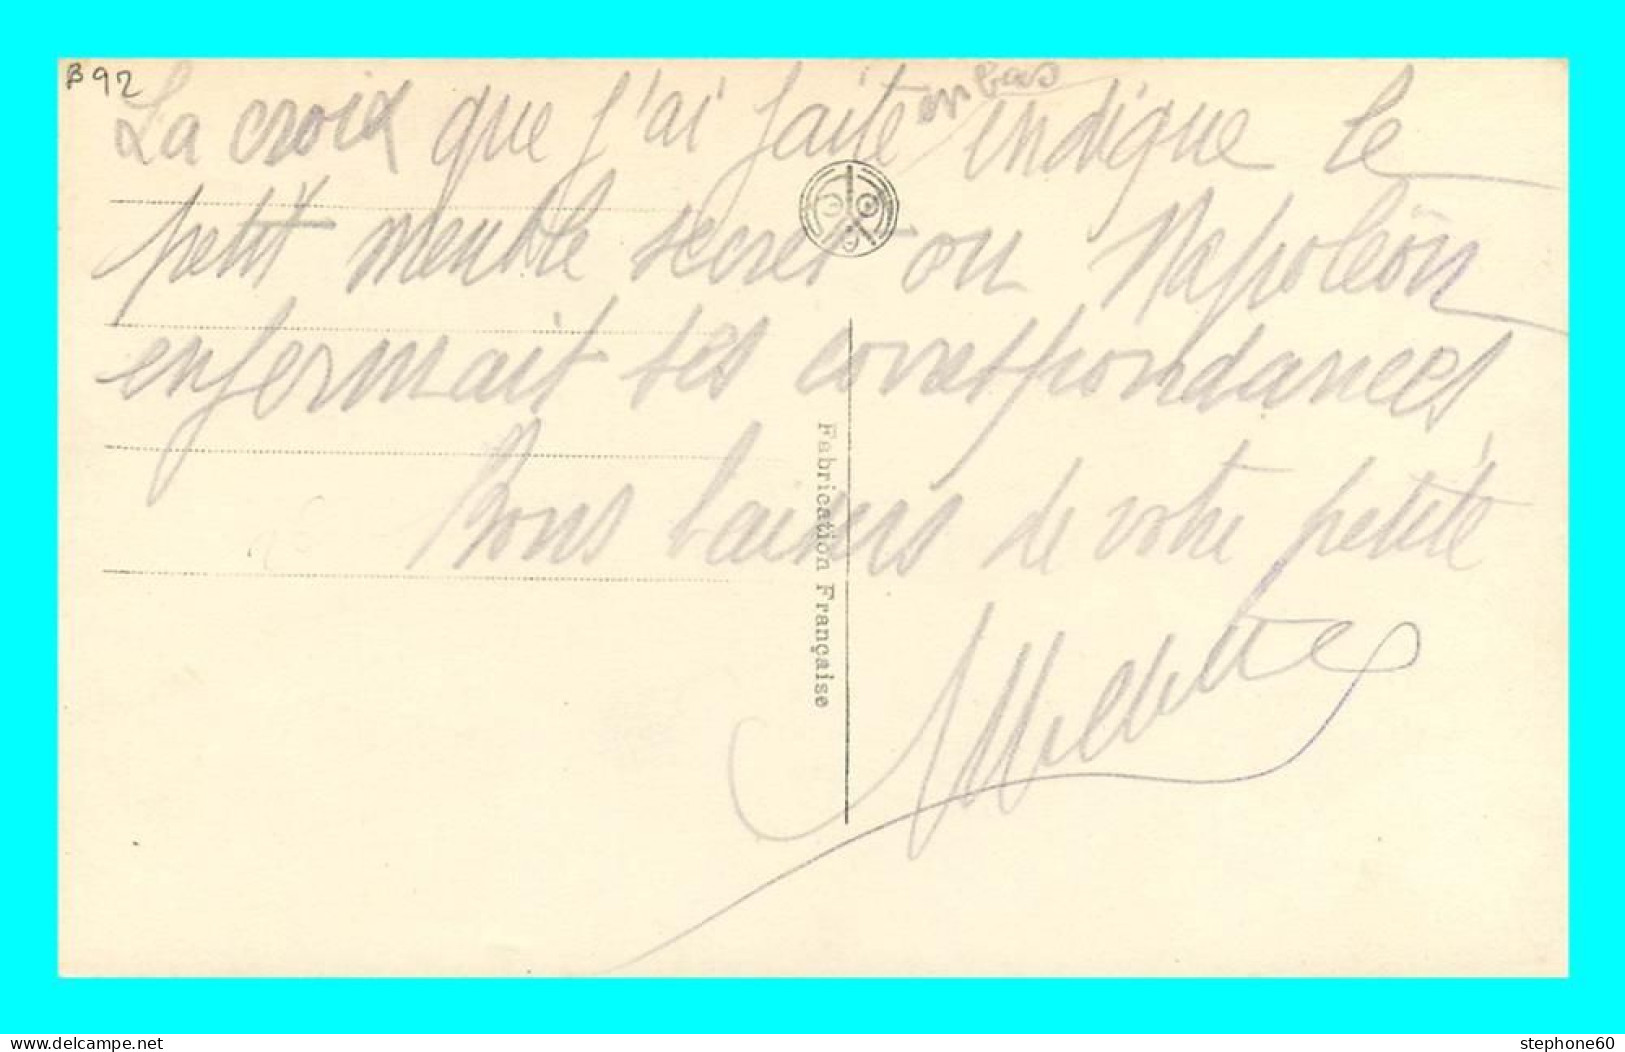 B92
en bas
La croix que j'ai faite indique le
petit meuble secret ou Napoléon
enfermait ses correspondances
Bons baisers de votre petite
Fabrication Française
www.delcampe.net
stephone60